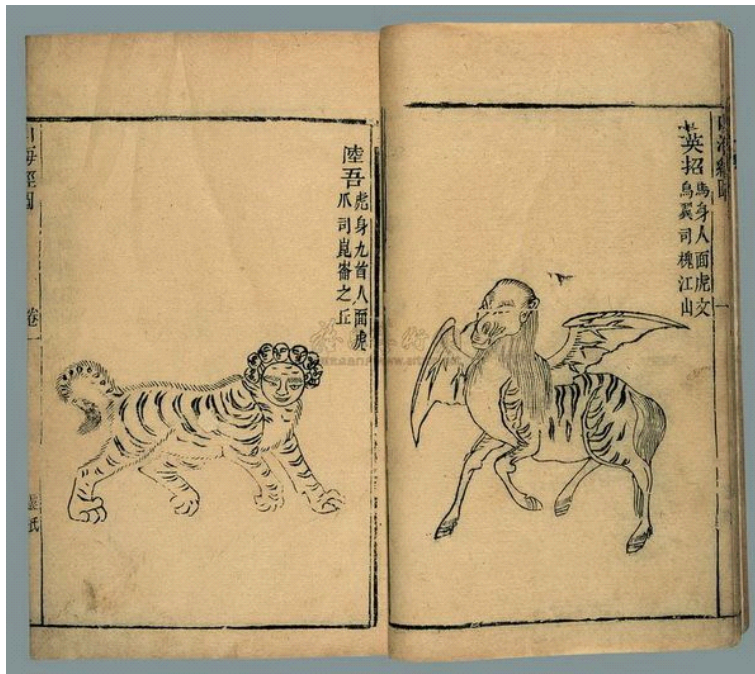 山海經圖
英招
馬身人面虎文
鳥翼司槐江山
一
陸吾
虎身九首人面虎
爪司崑崙之丘
山海經圖
卷一